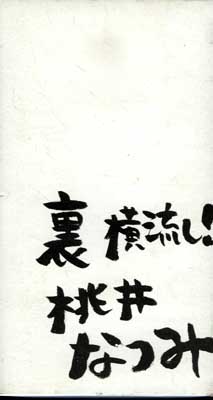 裏横流し!
桃井
なつみ